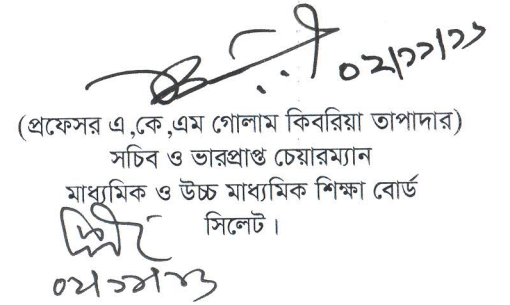 ০২/১১/১৬
(প্রফেসর এ,কে,এম গোলাম কিবরিয়া তাপাদার)
সচিব ও ভারপ্রাপ্ত চেয়ারম্যান
মাধ্যমিক ও উচ্চ মাধ্যমিক শিক্ষা বোর্ড
সিলেট।